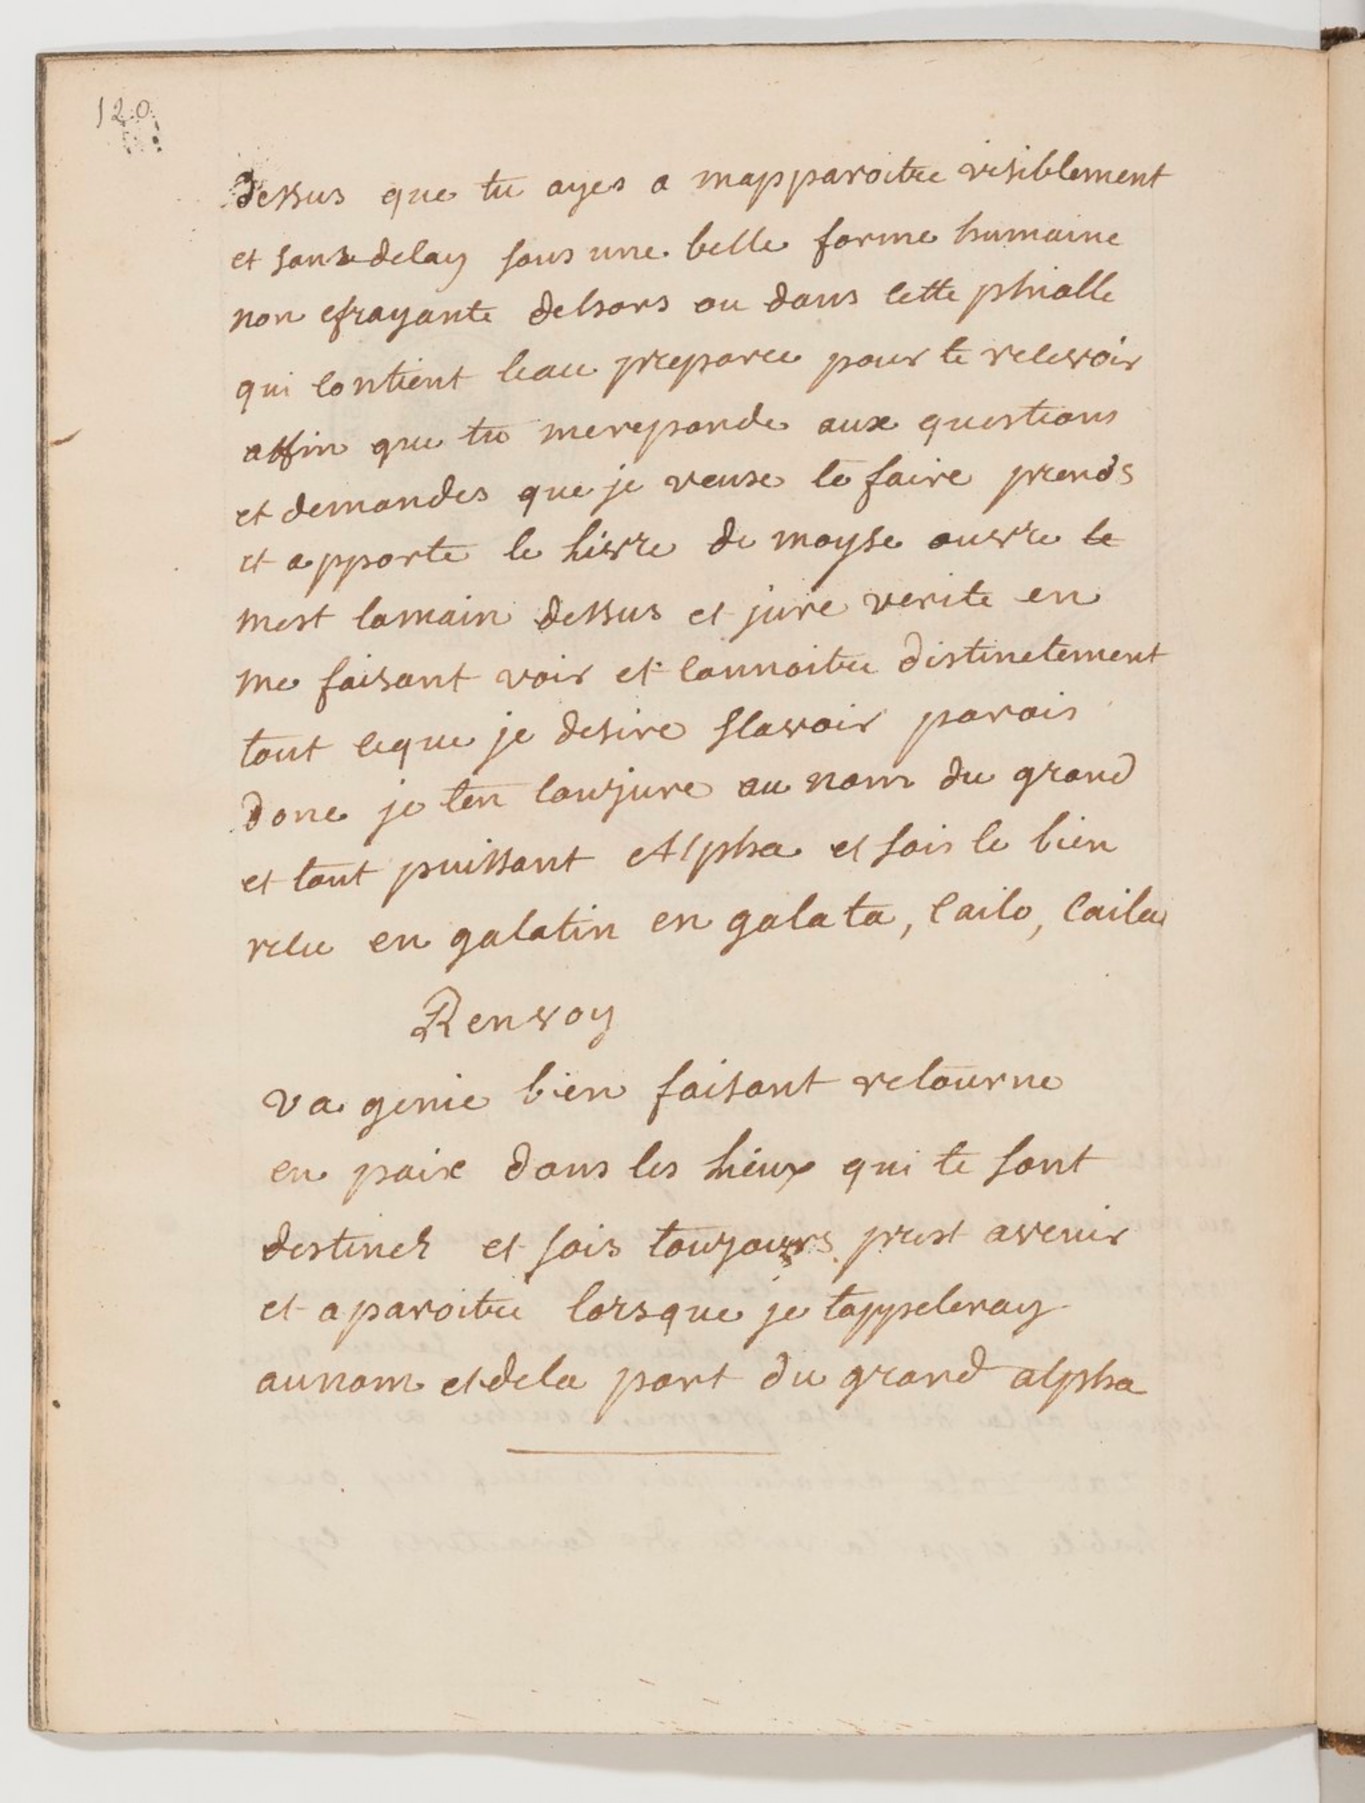 120
dessus que tu ayes a mapparoitre visiblement
et sans delay sous une belle forme humaine
non efrayante dehors ou dans cette phialle
qui contient leau preparee pour te recevoir
affin que tu mereponde aux questions
et demandes que je veuxe te faire prends
et apporte le livre de moyse ouvre le
mest lamain dessus et jure verite en
me faisant voir et connoitre distinctement
tout ceque je desire scavoir parois
donc je ten conjure au nom du grand
et tout puissant Alpha et sois le bien
relu en galatin en galata, cailo, caila
Renvoy
va genie bien faisant retourne
en paix dans les lieux qui te sont
destinez et sois toujours prest avenir
et aparoitre lorsque je tappeleray
aunom et dela part du grand alpha